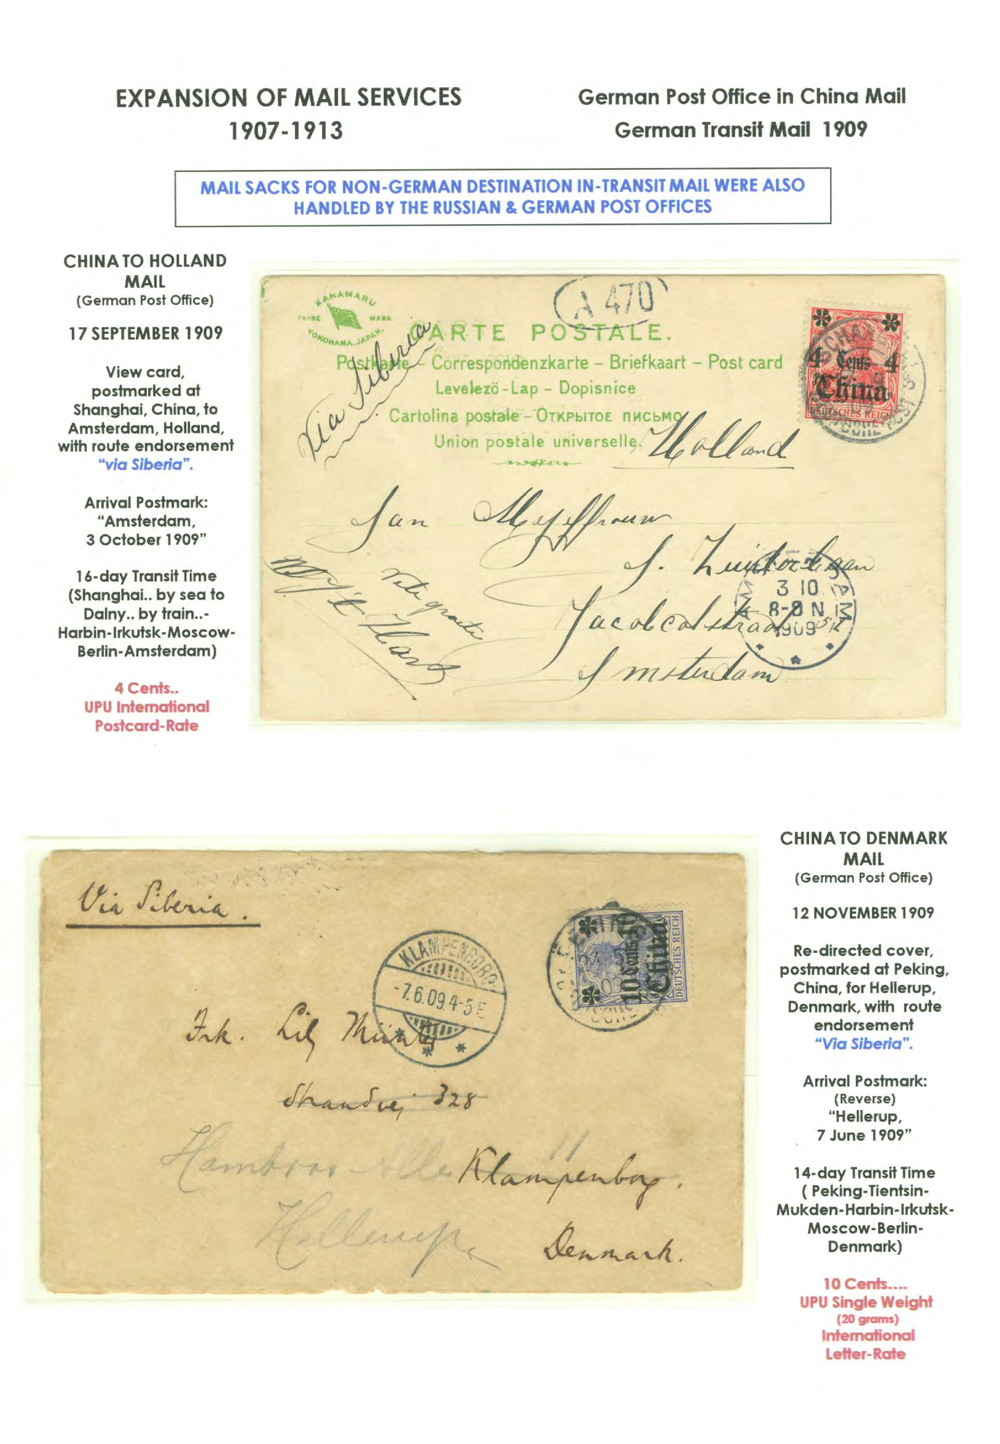 EXPANSION OF MAIL SERVICES
1907-1913
German Post Office in China Mail
German Transit Mail 1909
MAIL SACKS FOR NON-GERMAN DESTINATION IN-TRANSIT MAIL WERE ALSO
HANDLED BY THE RUSSIAN & GERMAN POST OFFICES
CHINA TO HOLLAND
MAIL
(German Post Office)
17 SEPTEMBER 1909
View card,
postmarked at
Shanghai, China, to
Amsterdam, Holland,
with route endorsement
"via Siberia".
Arrival Postmark:
"Amsterdam,
3 October 1909"
16-day Transit Time
(Shanghai.. by sea to
Dalny.. by train..-
Harbin-Irkutsk-Moscow-
Berlin-Amsterdam)
4 Cents..
UPU International
Postcard-Rate
KANAMARU
TRADE MARK
YOKOHAMA, JAPAN.
A 470
CARTE POSTALE.
Postkarte – Correspondenzkarte – Briefkaart – Post card
Levelezö-Lap – Dopisnice
Cartolina postale – Открытое письмо
Union postale universelle.
Via Siberia
4 Cents 4
China
DEUTSCHES REICH
Holland
Jacobcatstraat
Amsterdam
AMSTERDAM
3 10
8-9 N
1909
CHINA TO DENMARK
MAIL
(German Post Office)
12 NOVEMBER 1909
Re-directed cover,
postmarked at Peking,
China, for Hellerup,
Denmark, with route
endorsement
"Via Siberia".
Arrival Postmark:
(Reverse)
"Hellerup,
7 June 1909"
14-day Transit Time
( Peking-Tientsin-
Mukden-Harbin-Irkutsk-
Moscow-Berlin-
Denmark)
10 Cents....
UPU Single Weight
(20 grams)
International
Letter-Rate
Via Siberia.
KLAMPENBORG
-7.6.09.4-5 E
PEKING
10 Cents 10
China
DEUTSCHES REICH
Frk. Lily Müntz
Strandvej 328
Hambros Alle 11
Klampenborg.
Hellerup
Denmark.